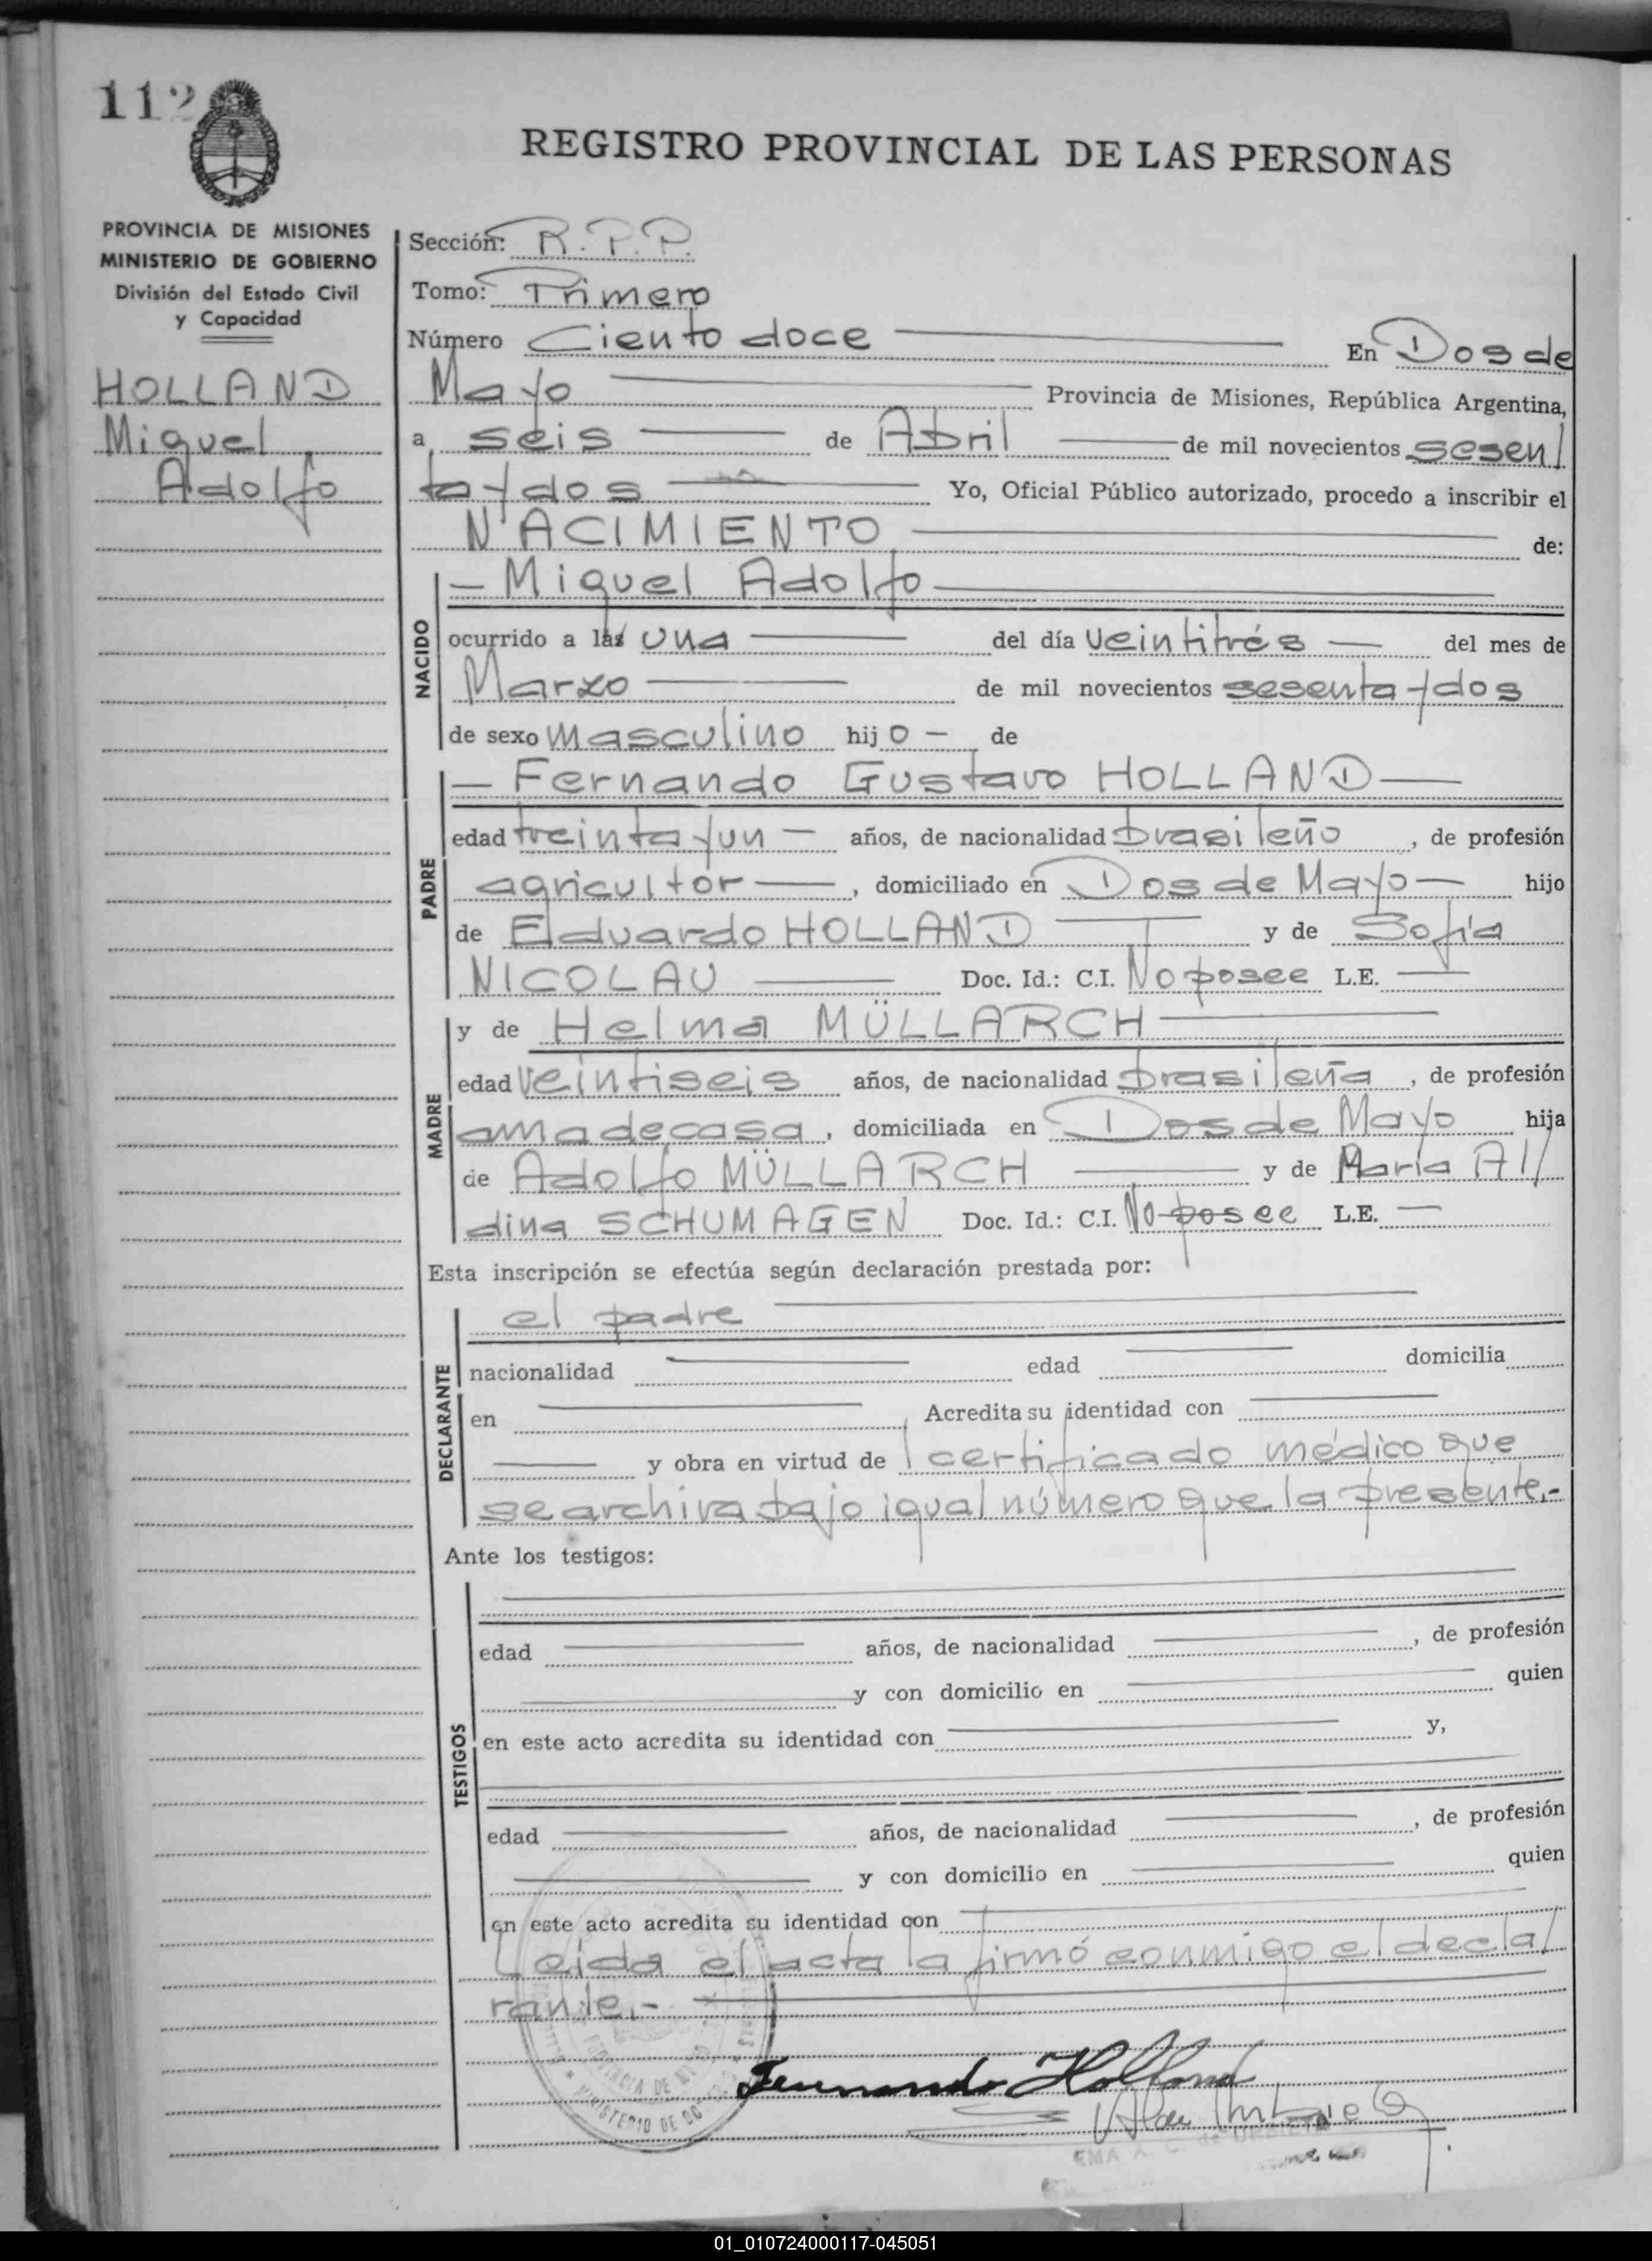 112
REGISTRO PROVINCIAL DE LAS PERSONAS
PROVINCIA DE MISIONES
MINISTERIO DE GOBIERNO
División del Estado Civil
y Capacidad
HOLLAND
Miguel
Adolfo
Sección: R.P.P.
Tomo: Primero
Número Ciento doce En Dos de
Mayo Provincia de Misiones, República Argentina,
a seis de Abril de mil novecientos sesen/
ta y dos Yo, Oficial Público autorizado, procedo a inscribir el
NACIMIENTO de:
NACIDO
— Miguel Adolfo
ocurrido a las una del día veintitrés — del mes de
Marzo de mil novecientos sesenta y dos
de sexo masculino hijo — de
PADRE
— Fernando Gustavo HOLLAND —
edad treinta y un — años, de nacionalidad brasileño, de profesión
agricultor —, domiciliado en Dos de Mayo — hijo
de Eduardo HOLLAND y de Sofía
NICOLAU Doc. Id.: C.I. No posee L.E. —
MADRE
y de Helma MÜLLARCH
edad veintiseis años, de nacionalidad brasileña, de profesión
ama de casa, domiciliada en Dos de Mayo hija
de Adolfo MÜLLARCH y de María Al/
dina SCHUMAGEN Doc. Id.: C.I. No posee L.E. —
Esta inscripción se efectúa según declaración prestada por:
DECLARANTE
el padre
nacionalidad edad domicilia
en Acredita su identidad con
y obra en virtud de certificado médico que
se archiva bajo igual número que la presente.-
Ante los testigos:
TESTIGOS
edad años, de nacionalidad , de profesión
y con domicilio en quien
en este acto acredita su identidad con y,
edad años, de nacionalidad , de profesión
y con domicilio en quien
en este acto acredita su identidad con
Leída el acta la firmó conmigo el decla/
rante.-
Fernando Holland
PROVINCIA DE
MINISTERIO DE GO
EMA
01_010724000117-045051